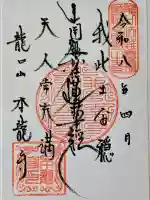 令和八年四月
我此土安穏
南無妙法蓮華経
天人常充満
龍口山 本龍寺